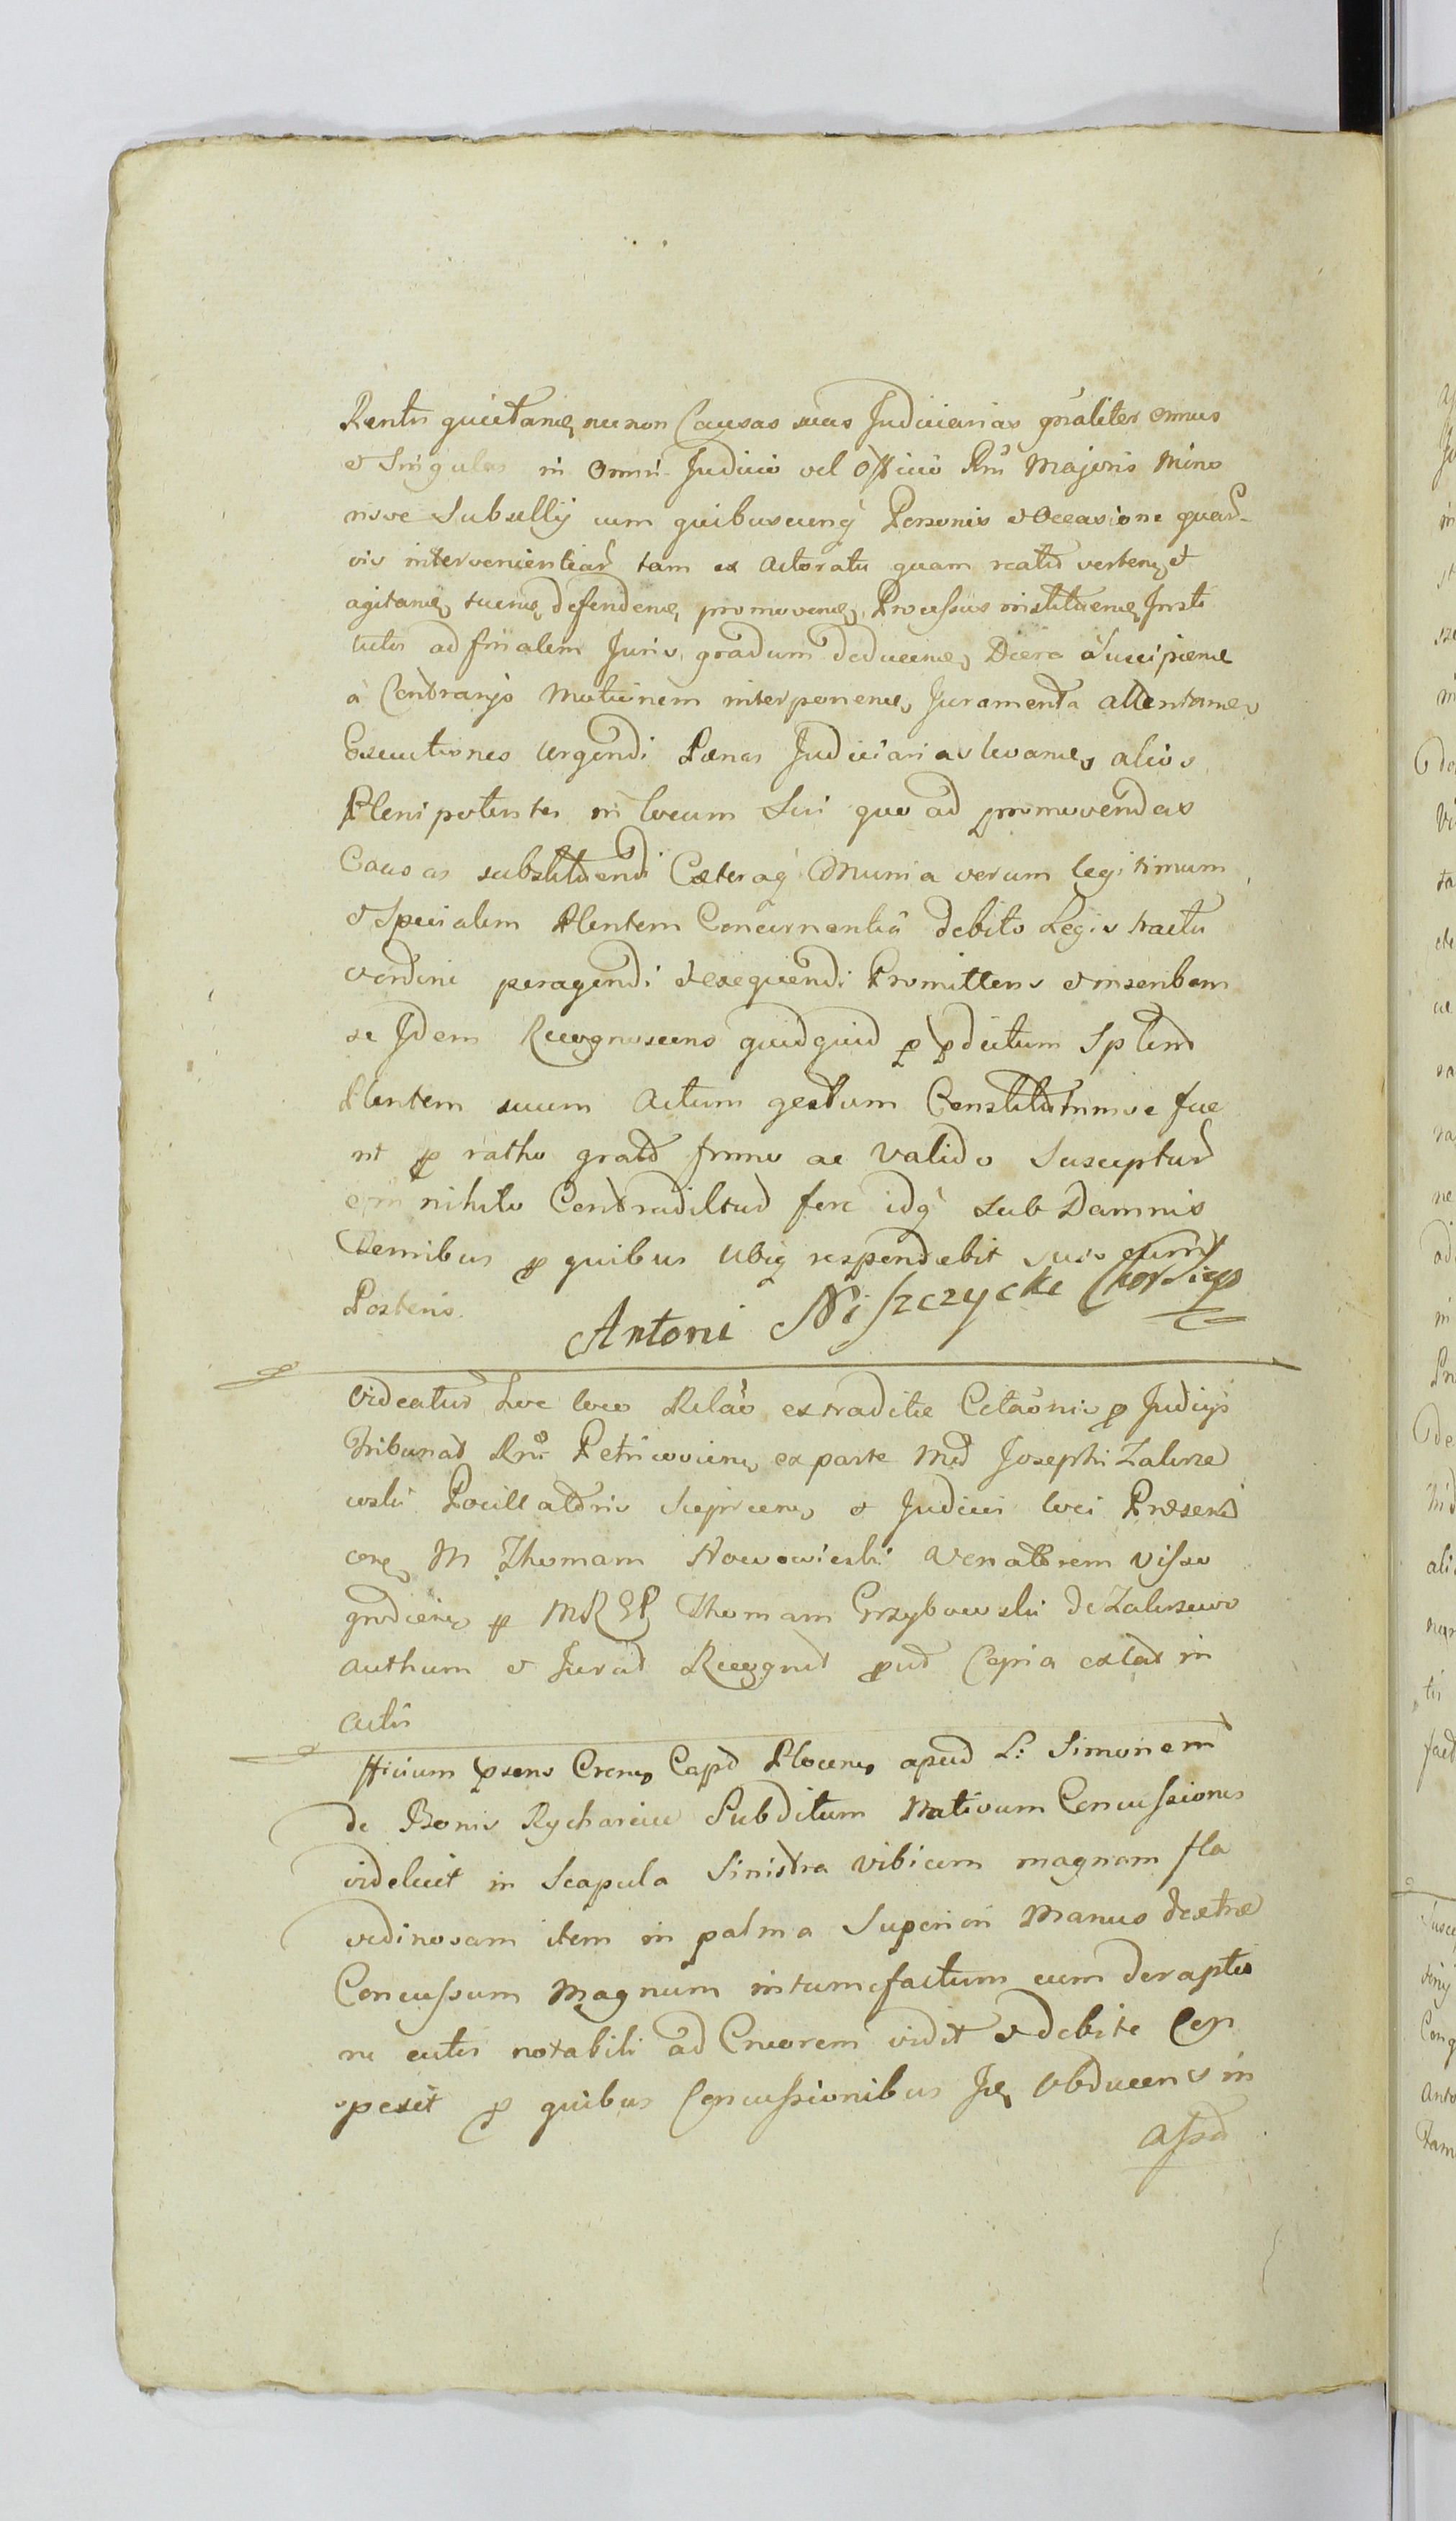 Rentis quietand, necnon Causas suas Judiciarias gnāliter omnes
et Singulas in omni Judicio vel Officio Rni Majoris Mino
risve Subsellij cum quibuscunq Personis et Occasione quar
vis intervenientiar tam ex actoratu quam reatu verten et
agitand, tuend, defendend, promovend, Processus instituend, Insti
tutos ad finalem Juris gradum deducend, Dcera suscipiend
à Contrarijs Motionem interponend, Juramenta attentand,
Executiones urgendi Pænas Judiciarias levand, alios
Plenipotentes in locum Sui quo ad promovendas
Causas substituendi Cæteraq Munia verum legitimum
et Specialem Plentem Concernentia debito Legis tractu
ordine peragendi et exequendi Promittens et inscribens
se Idem Recognoscens quidquid p pdictum Splem
Plentem suum actum gestum Constitutumve fue
rit p ratho grato firmo ac valido Suscepturum
nihilo Contradicturum fore idq sub Damnis
Terribus p quibus ubiq respondebit suis cum
Posteris.
Antoni Niszczycki Chorąży
Videatur hoc loco Relaō extraditæ Citaōnis p Judicijs
Tribunat Rni Petricovien, ex parte Md Josephi Zaluze
wski Pocillatoris Sieprcen, et Judicii loci Præsent
con, M Thomam Nowowieski Venatorem Visso
grodien, p MREP Thomam Grzybowski de Zaluzewo
authum et Jurat Recognit prout Copia extat in
actis
fficium psens Crene Capt Plocen, apud L: Simonem
de Bonis Rycharcice Subditum Nativum Concussiones
videlicet in Scapula Sinistra vibicem magnam fla
vedinosam item in palma Superiori Manus dextræ
Concussum Magnum intumefactum cum deraptio
ne cutis notabili ad Cruorem vidit et debite Con
spexit p quibus Concussionibus Je Obducens in